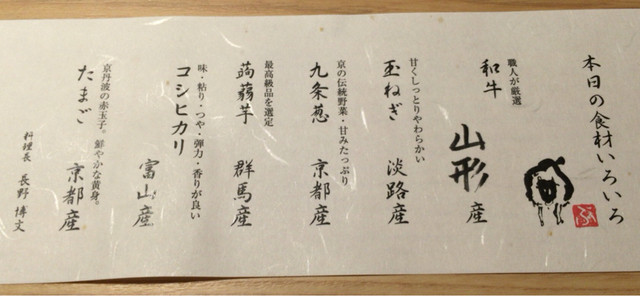 本日の食材いろいろ
職人が厳選
和牛 山形産
甘くしっとりやわらかい
玉ねぎ 淡路産
京の伝統野菜・甘みたっぷり
九条葱 京都産
最高級品を選定
蒟蒻芋 群馬産
味・粘り・つや・弾力・香りが良い
コシヒカリ 富山産
京丹波の赤玉子。鮮やかな黄身。
たまご 京都産
料理長 長野 博文